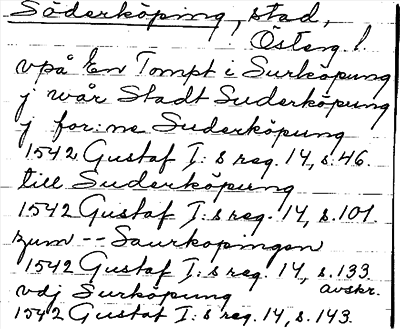 Söderköping, stad,
Österg. l.
vpå En Tompt i Surköpung
j wår Stadt Suderköpung
j for:ne Suderköpung
1542 Gustaf I:s reg. 14, s. 46.
till Suderköpung
1542 Gustaf I:s reg. 14, s. 101.
zum -- Saurkopingen
1542 Gustaf I:s reg. 14, s. 133.
avskr.
vdj Surköpung
1542 Gustaf I:s reg. 14, s. 143.